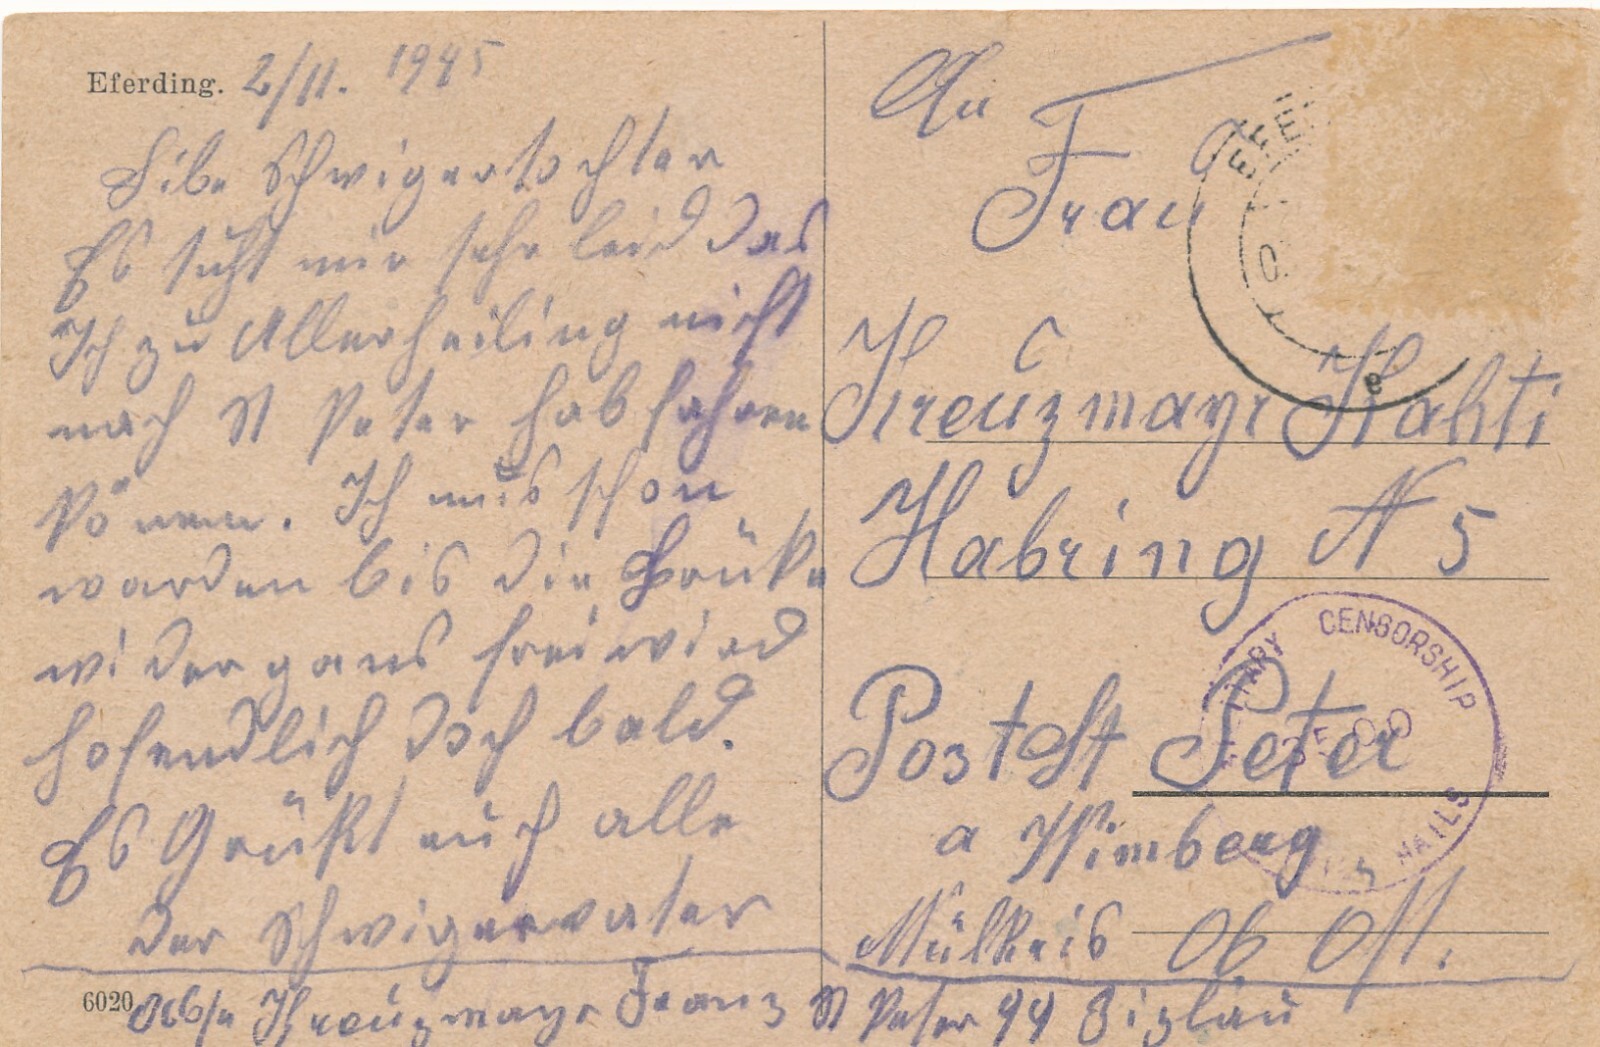 Eferding. 2/11. 1945
Libe Schwigertochter
Es tuht mir sehr leid das
Ich zu Allerheiling nicht
nach St Peter hab fahren
könen. Ich mus schon
warden bis die Brüke
wider gans frei wird
hofendlich doch bald.
Es Grüßt euch alle
der Schwigervater
6020
Abs. Kreuzmayr Franz St Peter 44 Zizlau
An
Frau
EFER
Kreuzmayr Kahti
Habring N 5
Post St Peter
a Wimberg
Mülkreis Ob Öst.
MILITARY CENSORSHIP
MAILS
e